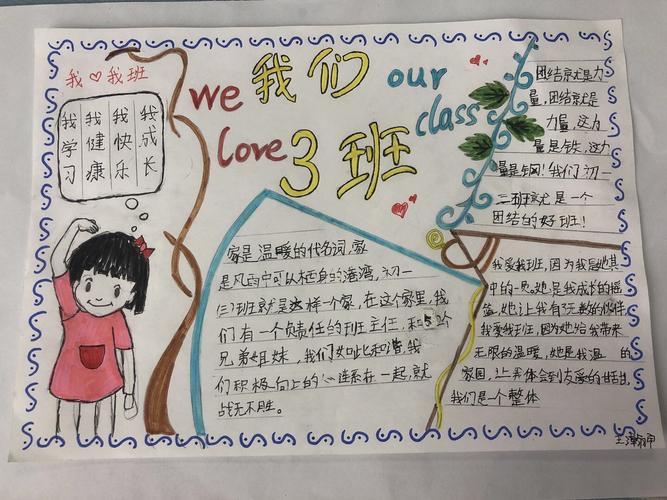 我♡我班
我成长
我快乐
我健康
我学习
we 我们 our
love 3班 class
团结就是力
量,团结就是
力量,这力
量是铁,这力
量是钢!我们初一
三班就是一个
团结的好班!
家是温暖的代名词,家
是风雨中可以栖息的港湾,初一
(三)班就是这样一个家,在这个家里,我
们有一个负责任的班主任,和52个
兄弟姐妹,我们如此和谐,我
们积极向上的心连系在一起,就
战无不胜。
我爱我班,因为我是她其
中的一 她是我成长的摇
篮,她让我有了无数的伙伴
我爱我班,因为她给我带来
无限的温暖,她是我温 的
家园,让我体会到友爱的甘甜,
我们是一个整体